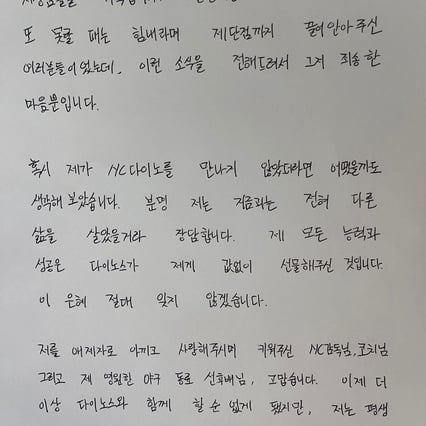 또 못할 때는 힘내라며 제단점까지 끌어안아 주신
여러분들이었는데, 이런 소식을 전해드려서 그저 죄송한
마음뿐입니다.
혹시 제가 NC다이노를 만나지 않았더라면 어땠을까도
생각해 보았습니다. 분명 저는 지금과는 전혀 다른
삶을 살았을거라 장담합니다. 제 모든 능력과
성공은 다이노스가 제게 값없이 선물해주신 것입니다.
이 은혜 절대 잊지 않겠습니다.
저를 애제자로 아끼고 사랑해주시며 키워주신 NC감독님, 코치님
그리고 제 영원한 야구 동료 선후배님, 고맙습니다. 이제 더
이상 다이노스와 함께 할 순 없게 됐지만, 저는 평생